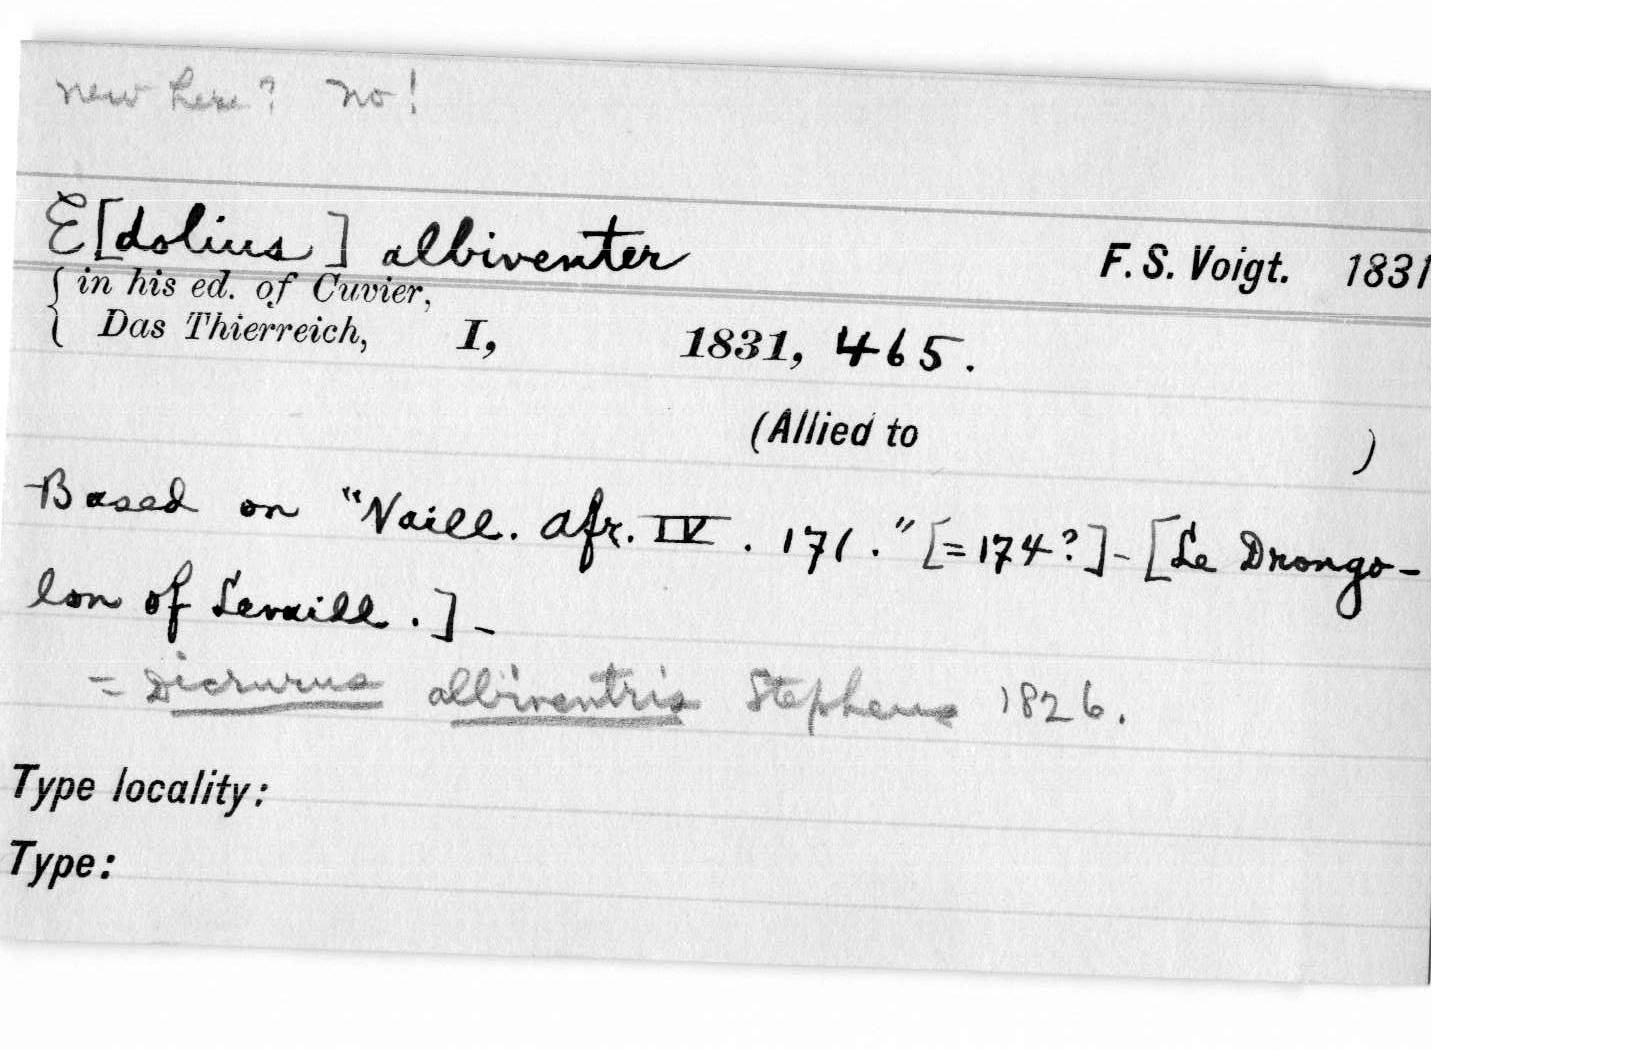 new here? no!
E[dolius] albiventer F. S. Voigt. 1831
{ in his ed. of Cuvier,
Das Thierreich, I, 1831, 465.
(Allied to )
Based on "Vaill. Afr. IV. 171." [=174?]- [Le Drongo-
lon of Levaill.]-
= Dicrurus albiventris Stephens 1826.
Type locality:
Type: